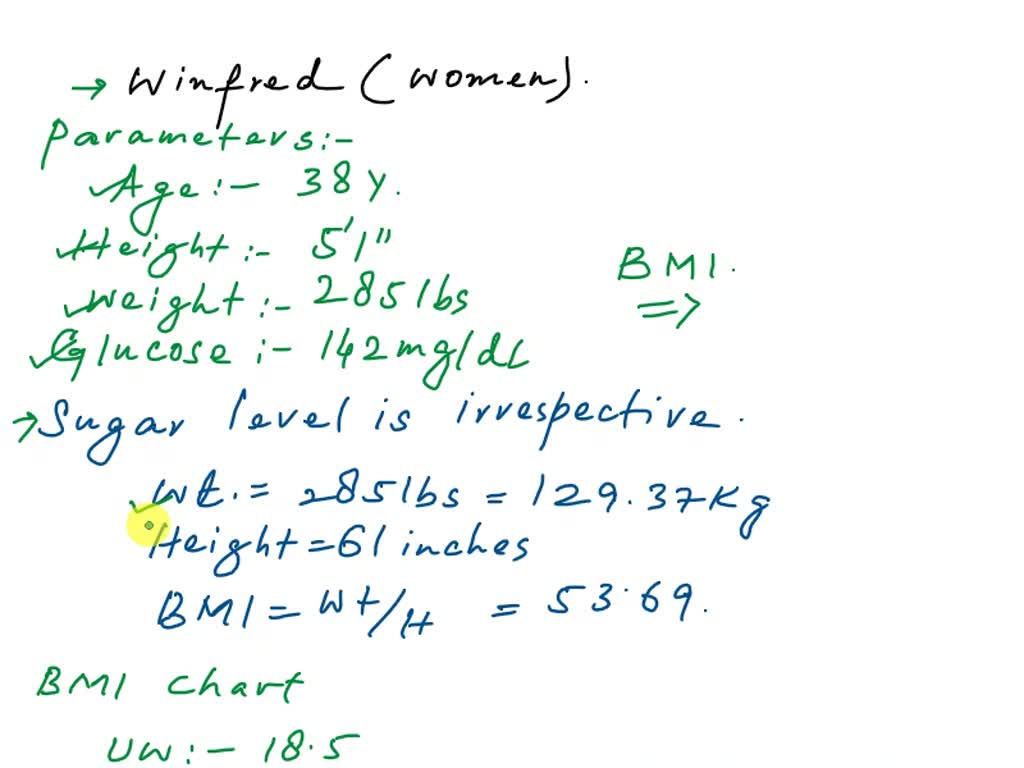 → Winfred (women).
Parameters:-
Age:- 38 y.
Height:- 5'1"
Weight:- 285 lbs
BMI.
⇒
Glucose:- 142 mg/dL
→ Sugar level is irrespective.
Wt. = 285 lbs = 129.37 Kg
Height = 61 inches
BMI = Wt/H = 53.69.
BMI chart
UW:- 18.5